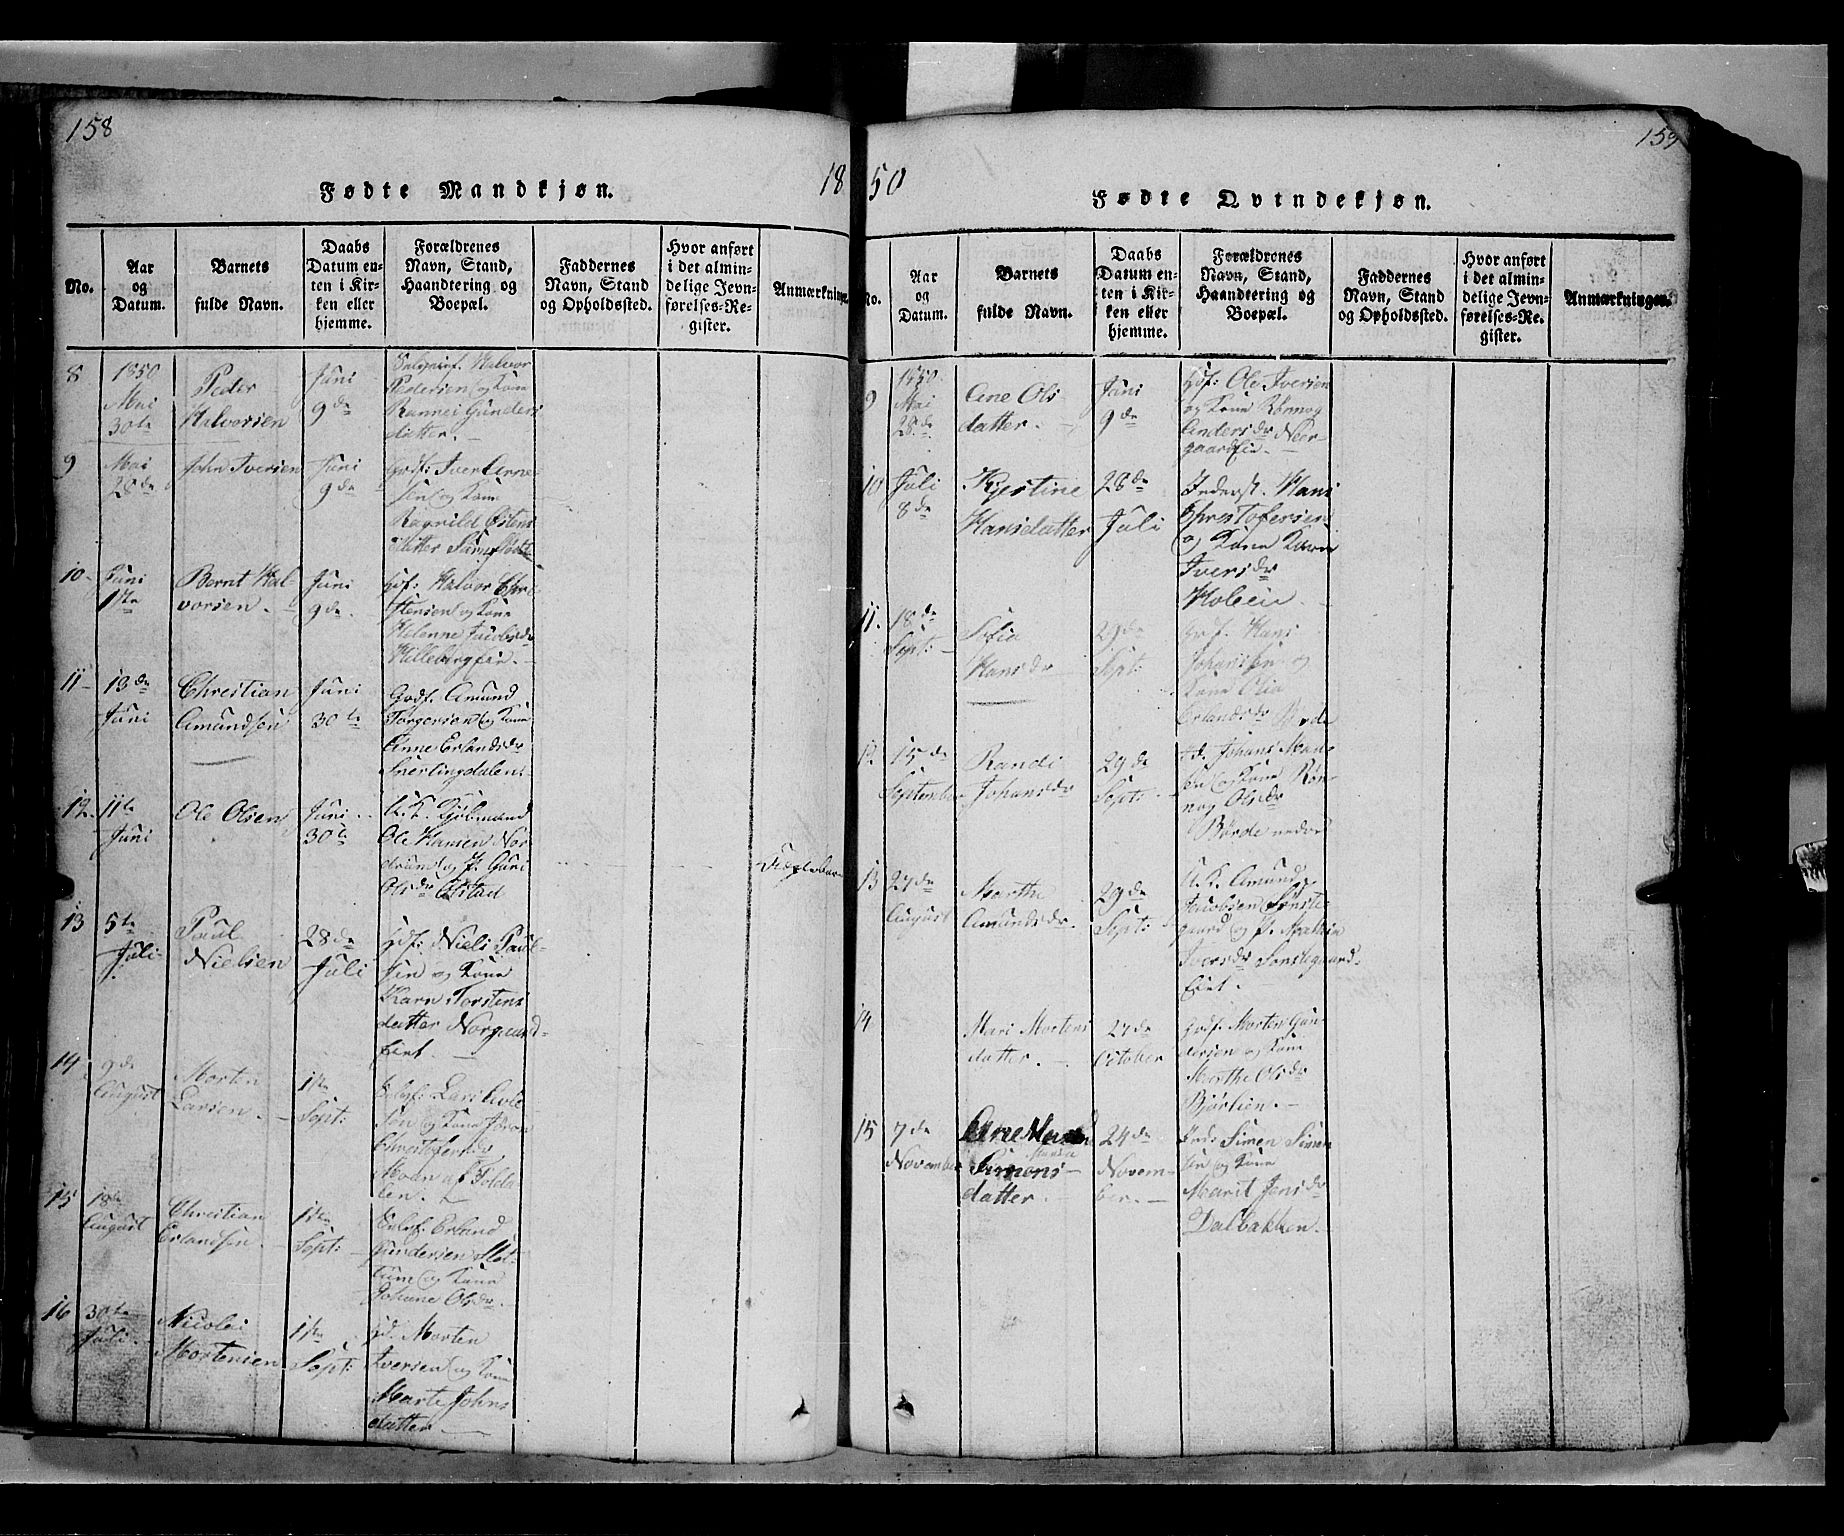 158
1850
Fødte Mandkjøn.
No.
Aar
og
Datum.
Barnets
fulde Navn.
Daabs
Datum en-
ten i Kir-
ken eller
hjemme.
Forældrenes
Navn, Stand,
Haandtering og
Boepæl.
Faddernes
Navn, Stand
og Opholdssted.
Hvor anført
i det almin-
delige Jevn-
førelses-Re-
gister.
Anmærkninge
8
1850
Mai
30te
Peder
Halvorsen
Juni
9de
Halvor
Pedersen og Kone
Rannei Gunders
datter.
9
Mai
28de
John Iversen
Juni
9de
Gdf: Iver Arne-
sen og Kone
Ragnild Østens
datter
10
Juni
1ste
Bernt Hal-
vorsen.
Juni
9de
Gdf: Halvor Chri-
stensen og Kone
Helenne Jacobsdr
11
13de
Juni
Christian
Amundsen
Juni
30te
Gdf. Amund
Torgersen og Kone
Anne Erlandsdr
Snerlingdalen
12
11te
Juni
Ole Olsen
Juni
30te
U. K.
Ole Hansen Nor-
drum og P. Guri
Olsdr
13
5te
Juli
Paul
Nielsen
28de
Juli
Gdf: Niels Paul-
sen og Kone
Karn Torstens
datter Norgaard-
14
9de
August
Morten
Larsen.
1ste
Sept:
Lars
sen og Kone
Christofersdr
15
18de
August
Christian
Erlandsen.
1ste
Sept:
Erland
Gundersen
og Kone
Johane Olsdr.
16
30te
Juli
Nicolai
Mortensen
1ste
Sept:
Gd. Morten
Iversen og Kone
Marte Johns
datter
159
Fødte Qvindekjøn.
No.
Aar
og
Datum.
Barnets
fulde Navn.
Daabs
Datum en-
ten i Kir-
ken eller
hjemme.
Forældrenes
Navn, Stand,
Haandtering og
Boepæl.
Faddernes
Navn, Stand
og Opholdssted.
Hvor anført
i det almin-
delige Jevn-
førelses-Re-
gister.
Anmærkninger.
9
1850
Mai
28de
Ane Ols
datter.
Juni
9de
Gdf: Ole Iversen
og Kone Rønnog
Andersdr Neer-
10
Juli
8de
Kjestine
Hansdatter
28de
Juli
Inderst. Hans
Christofersen
og Kone Karn
Iversdr
Holen
11.
18de
Sept:
Sofia
Hansdr
29de
Sept:
Gdf. Hans
Johansen og
Kone Olia
Erlandsdr
12
15de
September
Randi
Johansdr
29de
Sept:
Johans
og Kone Røn-
nog Olsdr
Børde nedre
13
27de
August
Marthe
Amundsdr.
29de
Sept:
U. K. Amund
Jacobsen Sønste-
gaard og P. Mathia
Iversdr Sønstegaard-
14
Mari Mortens
datter.
27de
October
Gdf. Morten Gun-
dersen og Kone
Marthe Olsdr
Bjørlien.
15
7de
November
Ane
Simons-
datter.
24de
Novem-
ber.
Simen Simen-
sen og Kone
Marit Jensdr
Dalbakken.